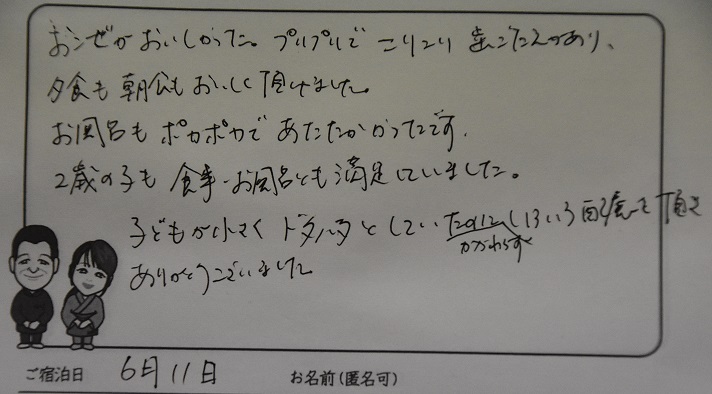 おこぜがおいしかった。プルプルでこりこり歯ごたえがあり、
夕食も朝食もおいしく頂けました。
お風呂もポカポカであたたかかったです。
2歳の子も食事・お風呂とも満足していました。
子どもが小さくドタバタとしていたのにいろいろ配慮を頂き
かかわらず
ありがとうございました
ご宿泊日 6月11日 お名前(匿名可)